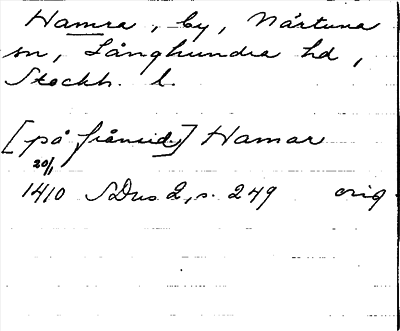 Hamra, by, Närtuna
sn, Långhundra hd,
Stockh. l.
[på frånsid.] Hamar
20/1
1410 SDns 2, s. 249 orig.